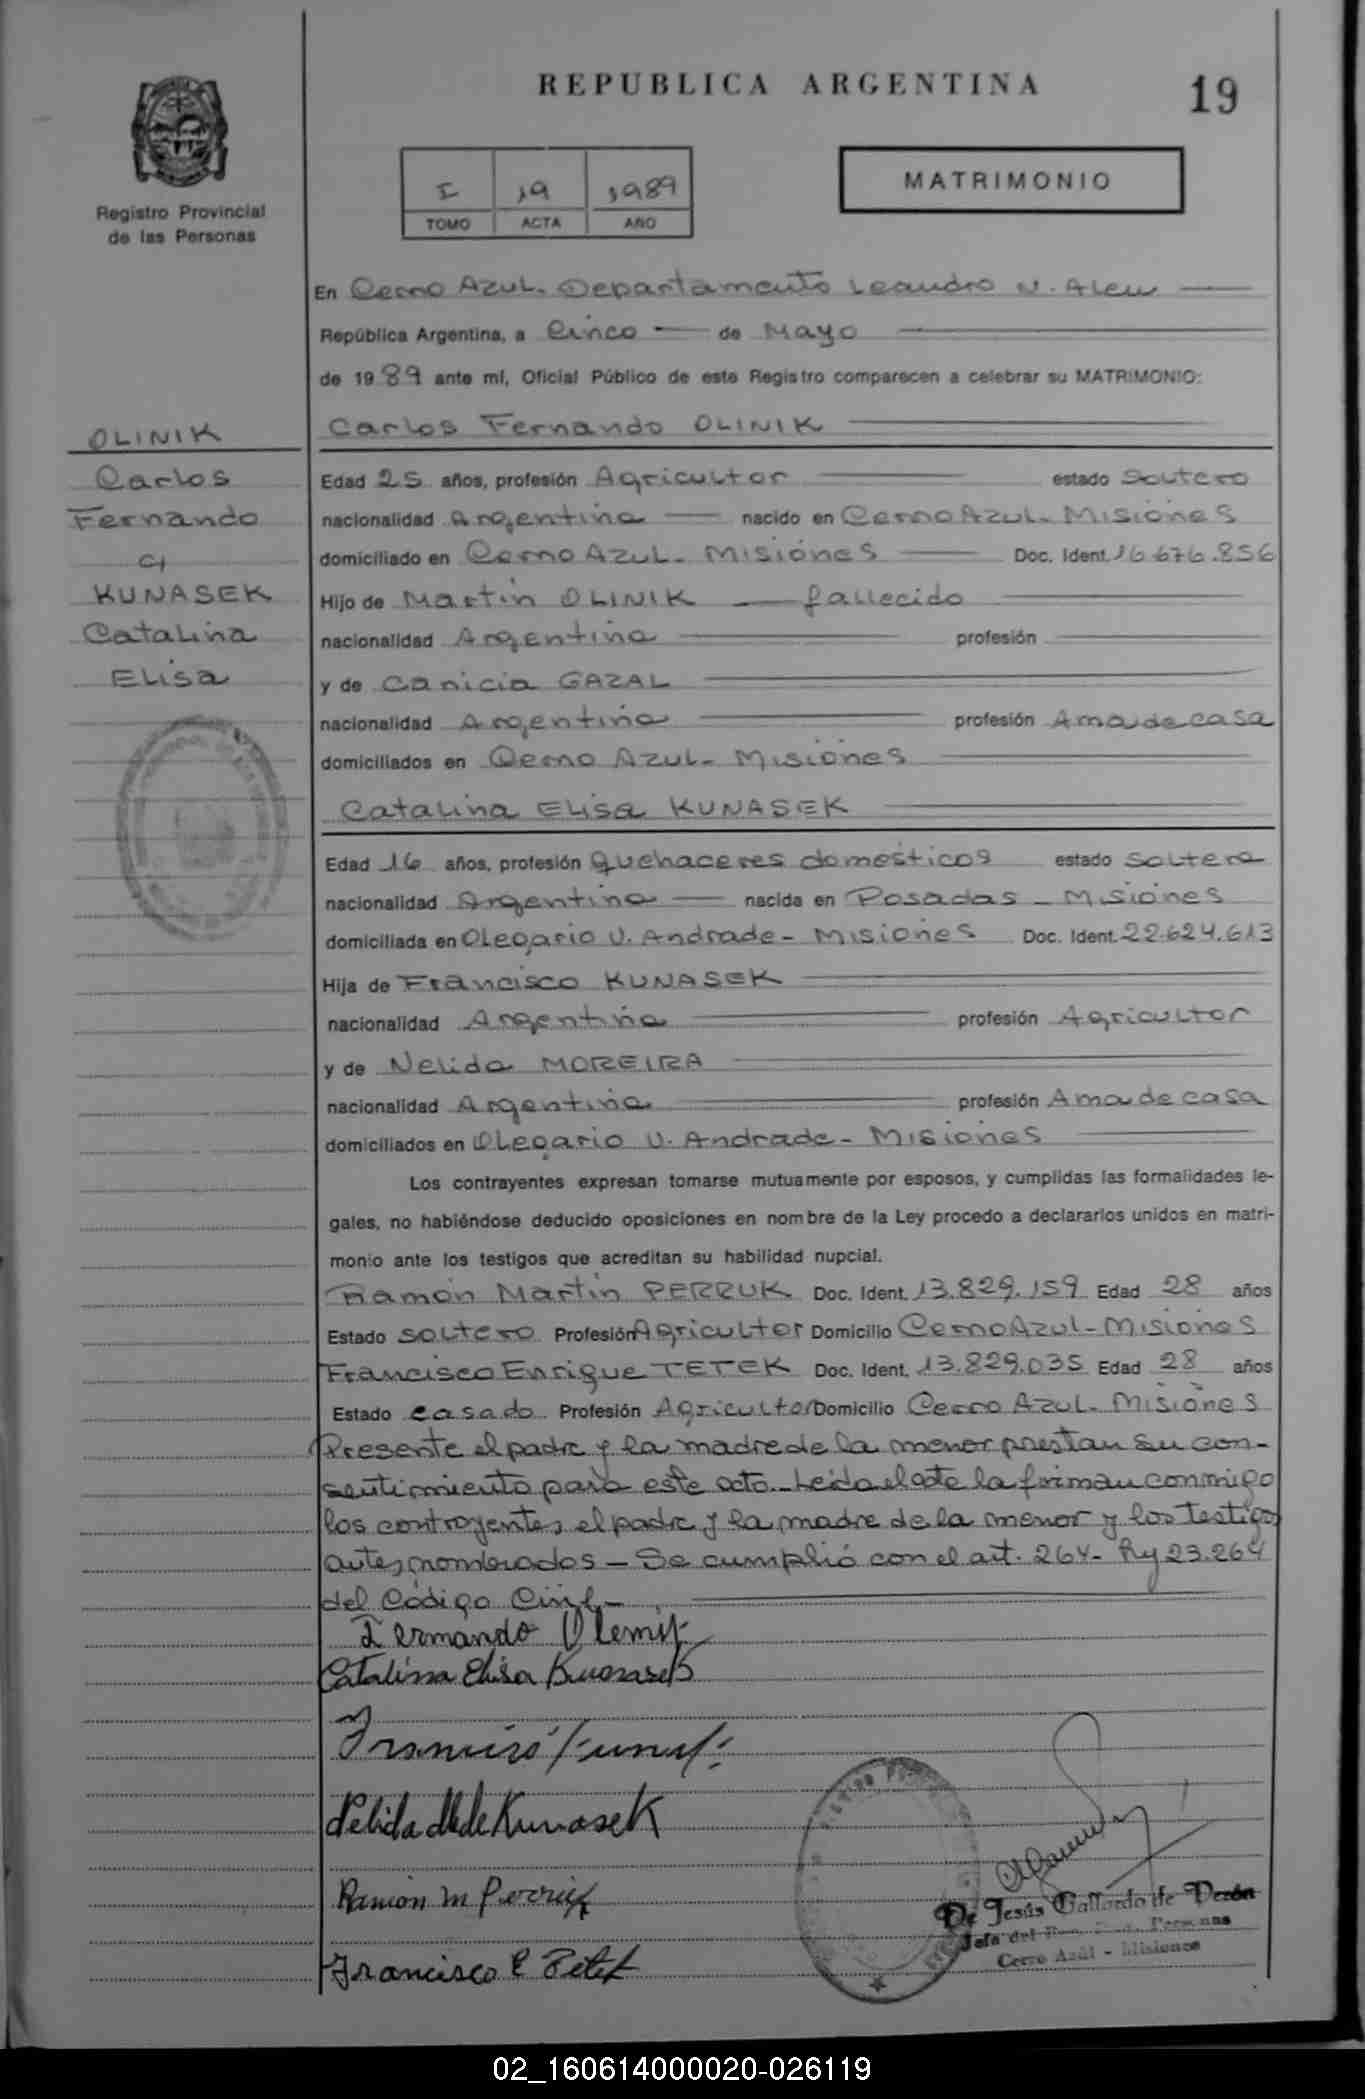 REPUBLICA ARGENTINA
19
Registro Provincial
de las Personas
I 19 1989
TOMO ACTA AÑO
MATRIMONIO
En Cerro Azul. Departamento Leandro N. Alem
República Argentina, a Cinco de Mayo
de 1989 ante mí, Oficial Público de este Registro comparecen a celebrar su MATRIMONIO:
OLINIK
Carlos
Fernando
c/
KUNASEK
Catalina
Elisa
Carlos Fernando OLINIK
Edad 25 años, profesión Agricultor estado Soltero
nacionalidad Argentina nacido en Cerro Azul. Misiones
domiciliado en Cerro Azul. Misiones Doc. Ident. 16.676.856
Hijo de Martin OLINIK fallecido
nacionalidad Argentina profesión
y de Canicia GAZAL
nacionalidad Argentina profesión Ama de casa
domiciliados en Cerro Azul. Misiones
Catalina Elisa KUNASEK
Edad 16 años, profesión quehaceres domésticos estado soltera
nacionalidad Argentina nacida en Posadas - Misiones
domiciliada en Olegario V. Andrade - Misiones Doc. Ident. 22.624.613
Hija de Francisco KUNASEK
nacionalidad Argentina profesión Agricultor
y de Nelida MOREIRA
nacionalidad Argentina profesión Ama de casa
domiciliados en Olegario V. Andrade - Misiones
Los contrayentes expresan tomarse mutuamente por esposos, y cumplidas las formalidades le-
gales, no habiéndose deducido oposiciones en nombre de la Ley procedo a declararlos unidos en matri-
monio ante los testigos que acreditan su habilidad nupcial.
Ramón Martin PERRUK Doc. Ident. 13.829.159 Edad 28 años
Estado soltero Profesión Agricultor Domicilio Cerro Azul - Misiones
Francisco Enrique TETEK Doc. Ident. 13.829.035 Edad 28 años
Estado casado Profesión Agricultor Domicilio Cerro Azul. Misiones
Presente el padre y la madre de la menor prestan su con-
sentimiento para este acto. Leida el acta la firman conmigo
los contrayentes, el padre y la madre de la menor y los testigos
antes nombrados - Se cumplió con el art. 264 - Ley 23.264
del Código Civil -
Fernando Olenik
Catalina Elisa Kunasek
Nelida M de Kunasek
Ramon M Perruk
Francisco E Tetek
De Jesús Gallardo de Perón
Jefa del Reg. Prov. Personas
Cerro Azúl - Misiones
02_160614000020-026119